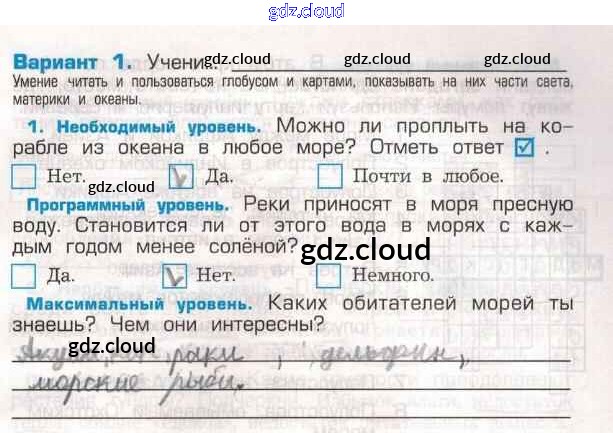 gdz.cloud
Вариант 1. Ученик gdz.cloud gdz.cloud
Умение читать и пользоваться глобусом и картами, показывать на них части света,
материки и океаны.
1. Необходимый уровень. Можно ли проплыть на ко-
рабле из океана в любое море? Отметь ответ ✓ .
Нет. ✓ Да. Почти в любое.
gdz.cloud
Программный уровень. Реки приносят в моря пресную
воду. Становится ли от этого вода в морях с каж-
дым годом менее солёной?
gdz.cloud
Да. ✓ Нет. Немного.
Максимальный уровень. Каких обитателей морей ты
знаешь? Чем они интересны?
gdz.cloud gdz.cloud
раки, дельфин,
морские рыби.